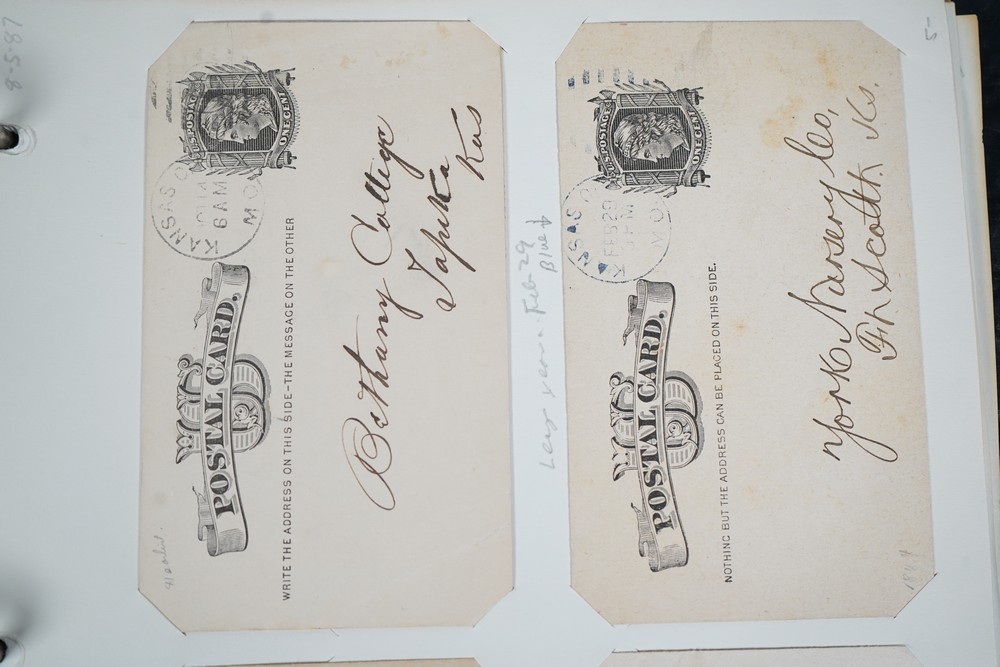 8-5-87
U.S. POSTAGE
ONE CENT
KANSAS
6 AM
MO
U.S.
POSTAL CARD.
WRITE THE ADDRESS ON THIS SIDE-THE MESSAGE ON THE OTHER
Bethany College
Topeka
Kas
Leap year - Feb 29
Blue
5-
U.S. POSTAGE
ONE CENT
NSAS
FEB 29
MO
U.S.
POSTAL CARD.
NOTHING BUT THE ADDRESS CAN BE PLACED ON THIS SIDE.
York Nursery Co,
Ft Scott Ks.